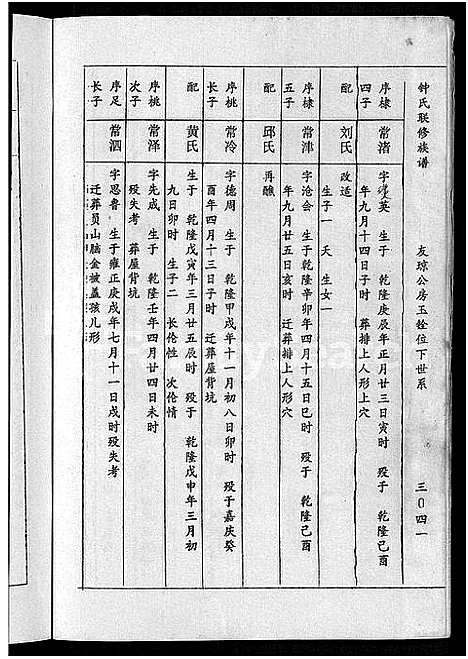 钟氏联修族谱
友琼公房玉铨位下世系
三〇四一
序棣 四子
常渚
字 英 生于 乾隆庚辰年正月廿三日寅时 殁于 乾隆己酉
年九月十四日子时 葬排上人形上穴
配
刘氏
改适
生子一 夭 生女一
序棣 五子
常津
字沧会 生于乾隆辛卯年四月十五日巳时 殁于 乾隆己酉
年九月廿五日亥时 迁葬排上人形穴
配
邱氏
再醮
序桃 长子
常冷
字德周 生于 乾隆甲戌年十一月初八日卯时 殁于嘉庆癸
酉年四月十三日子时 迁葬屋背坑
配
黄氏
生于 乾隆戊寅年三月廿五辰时 殁于 乾隆戊申年三月初
九日卯时 生子二 长伦性 次伦情
序桃 次子
常泽
字先成 生于 乾隆壬年四月廿四日未时
殁失考 葬屋背坑
序足 长子
常泗
字思鲁 生于雍正庚戌年七月十一日戌时殁失考
迁葬员山脑金被盖孩儿形